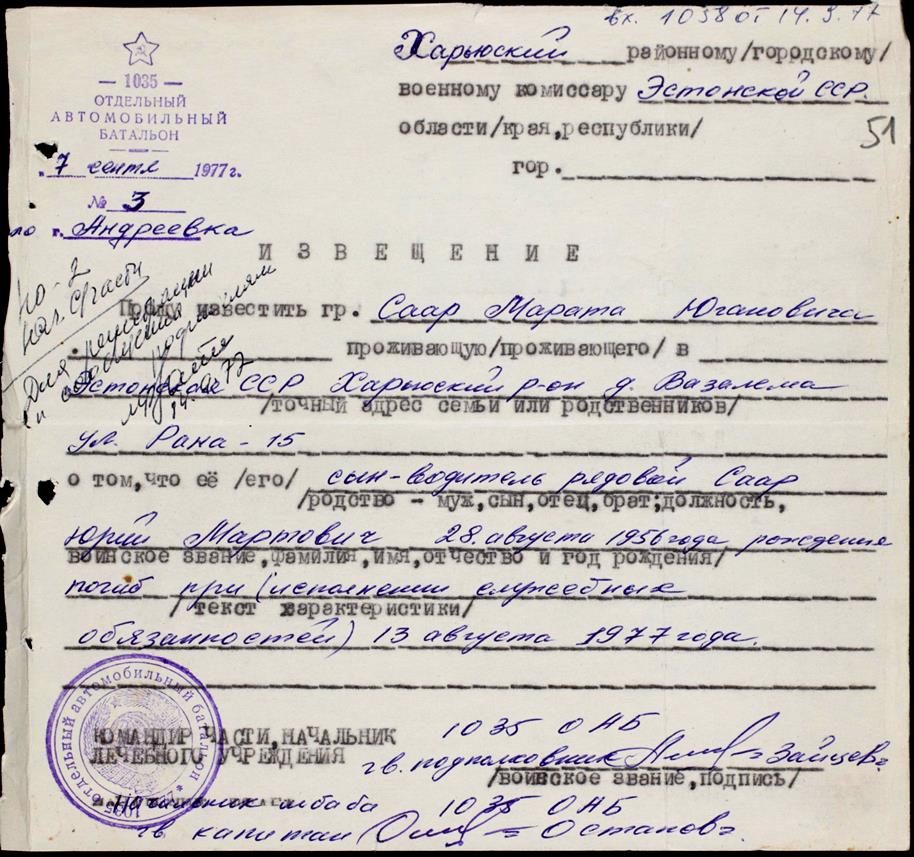 вх. 1038 от 14.9.77
— 1035 —
ОТДЕЛЬНЫЙ
АВТОМОБИЛЬНЫЙ
БАТАЛЬОН
"7 сентя 1977г.
№ 3
г. Андреевка
Харьюский районному/городскому/
военному комиссару Эстонской ССР.
области/края,республики/
гор.
51
ИЗВЕЩЕНИЕ
но-2
нал. части
Для
и
родителям
14.9.77
Прошу известить гр. Саар Марата Югановича
проживающую/проживающего/ в
Эстонской ССР Харьюский р-он д. Вазалема
/точный адрес семьи или родственников/
ул. Рана - 15
о том,что её /его/ сын-водитель рядовой Саар
/родство – муж,сын,отец,брат;должность,
Юрий Мартович 28 августа 1956 года рождения
воинское звание,фамилия,имя,отчество и год рождения/
погиб при (исполнении служебных
/текст характеристики/
обязанностей) 13 августа 1977 года.
КОМАНДИР ЧАСТИ,НАЧАЛЬНИК
ЛЕЧЕБНОГО УЧРЕЖДЕНИЯ
1035 ОАБ
гв. подполковник Зайцев
/воинское звание,подпись/
Начальник штаба 1035 ОАБ
гв капитан Остапов
1035 * отдельный автомобильный батальон *